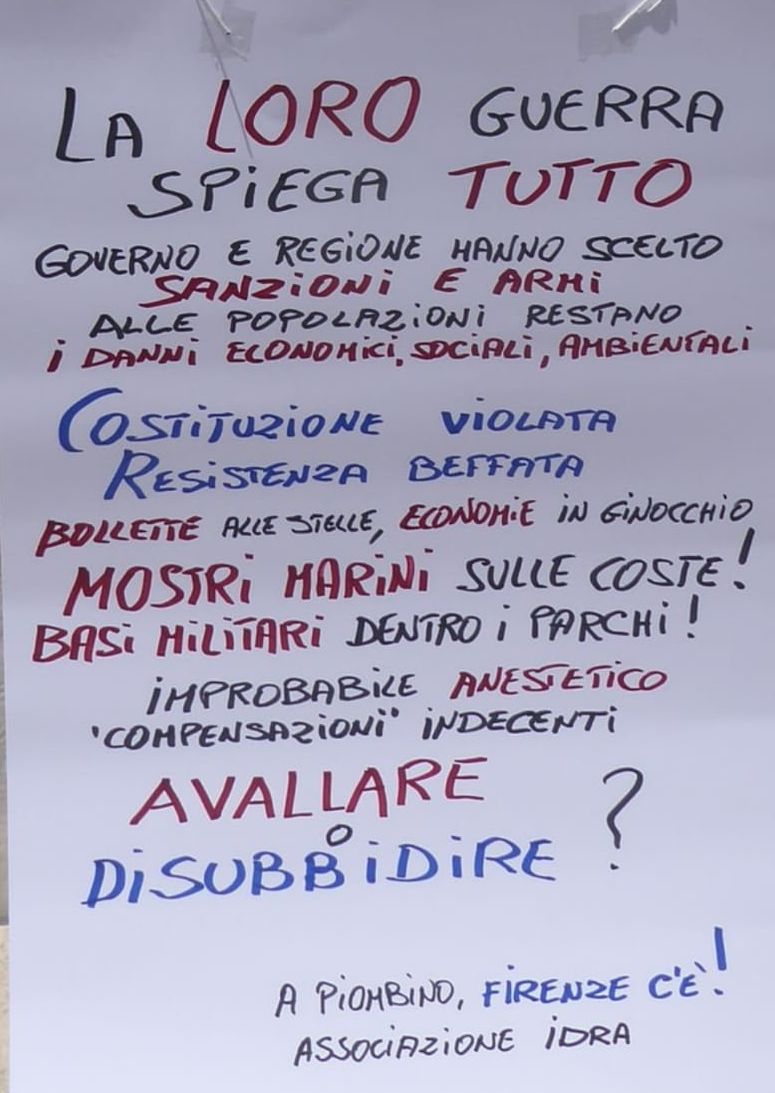 LA LORO GUERRA
SPIEGA TUTTO
GOVERNO E REGIONE HANNO SCELTO
SANZIONI E ARMI
ALLE POPOLAZIONI RESTANO
I DANNI ECONOMICI, SOCIALI, AMBIENTALI
COSTITUZIONE VIOLATA
RESISTENZA BEFFATA
BOLLETTE ALLE STELLE, ECONOMIE IN GINOCCHIO
MOSTRI MARINI SULLE COSTE!
BASI MILITARI DENTRO I PARCHI!
IMPROBABILE ANESTETICO
'COMPENSAZIONI' INDECENTI
AVALLARE
O
DISUBBIDIRE ?
A PIOMBINO, FIRENZE C'È!
ASSOCIAZIONE IDRA